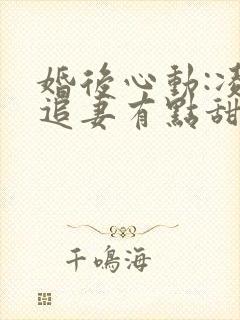 婚後心動:凌
追妻有點甜
千鳴海